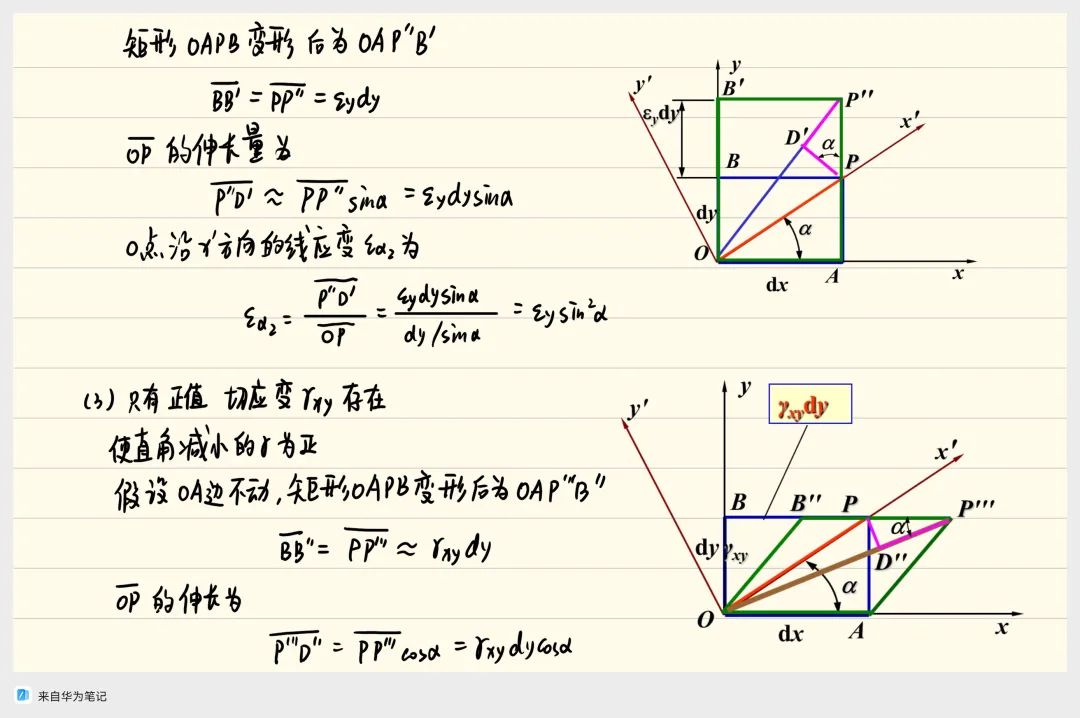 矩形OAPB变形后为OAP"B'
BB' = PP" = εydy
OP的伸长量为
P"D' ≈ PP" sinα = εydysinα
O点沿x'方向的线应变εα2为
εα2 = P"D' / OP = εydysinα / dy/sinα = εysin²α
(3) 只有正值 切应变γxy存在
使直角减小的γ为正
假设OA边不动,矩形OAPB变形后为OAP'''B"
BB" = PP''' ≈ γxydy
OP的伸长为
P'''D" = PP''' cosα = γxydycosα
y
y'
B'
P''
εydy
x'
D'
α
B
P
dy
α
O
x
dx
A
y
γxydy
y'
x'
B
B''
P
P'''
α
dy
γxy
D''
α
O
dx
A
x
来自华为笔记